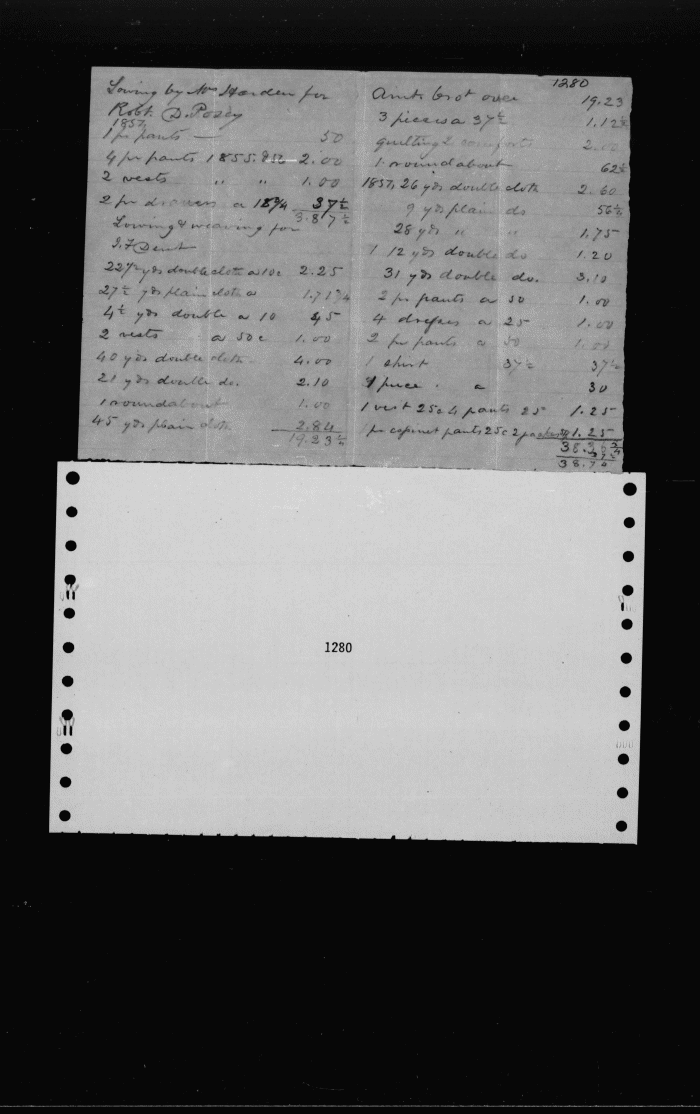 Sowing by Mrs Harden for
Robt. D. Posey
1857,
1 pr pants — 50
4 pr pants 1855.&56 2.00
2 vests " " 1.00
2 pr drawers a 18¾ 37½
3.87½
Sowing & weaving for
J.F. Dent
22½ yds double cloth a 10c 2.25
27½ yds plain cloth a 1.71¾
4½ yds double a 10 45
2 vests a 50c 1.00
40 yds double cloth 4.00
21 yds double do. 2.10
1 roundabout 1.00
45 yds plain cloth 2.84
19.23½
1280
Amt. brot over 19.23
3 pieces a 37½ 1.12½
quilting 2 comforts 2.00
1 roundabout 62½
1857, 26 yds double cloth 2.60
9 yds plain do 56½
28 yds " " 1.75
1 12 yds double do 1.20
31 yds double do. 3.10
2 pr pants a 50 1.00
4 dresses a 25 1.00
2 pr pants a 50 1.00
1 shirt 37½ 37½
piece . a 30
1 vest 25c 4 pants 25 1.25
1 pr pants 25c 2 1.25
38.70
1280